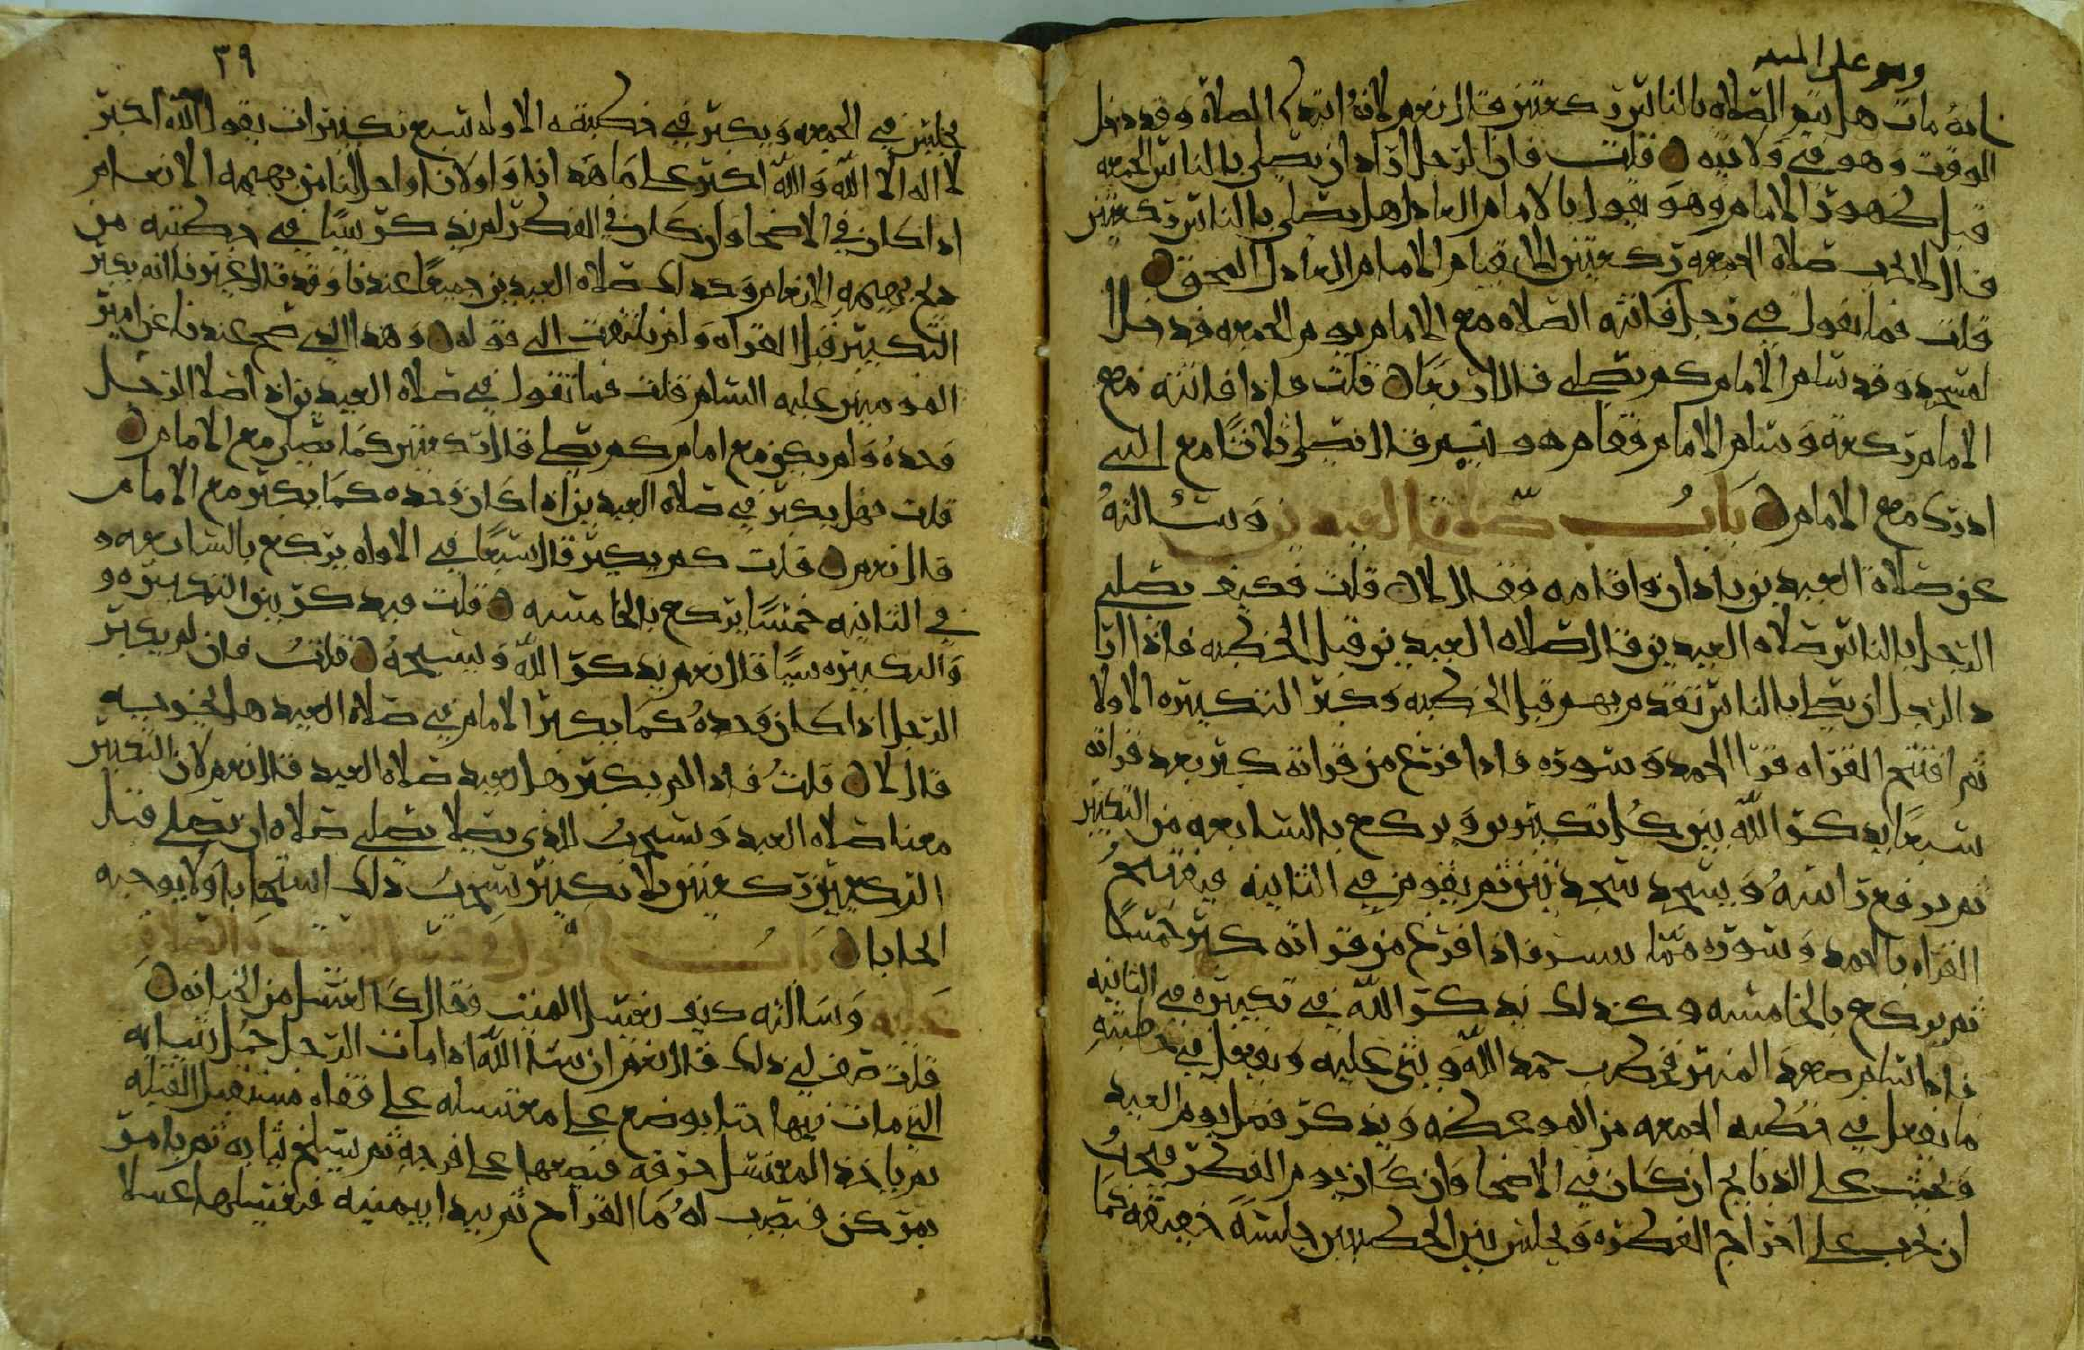 وهو على المنبر
انه مات هل يتم الصلاه بالناس ركعتين قال نعم لانه ابتدا الصلاة وقد دخل
الوقت وهو في ولايته قلت فان رجل اراد ان يصلي بالناس الجمعه
قبل ظهور الامام وهو يقول بالامام العادل هل يصلي بالناس ركعتين
قال لا تجب صلاة الجمعه ركعتين الا بقيام الامام العادل المحق
قلت فما تقول في رجل فاتته الصلاه مع الامام يوم الجمعه فدخل ا
لمسجد وقد سلم الامام كم يصلي قال اربعا قلت فاذا فاتته مع
الامام ركعة وسلم الامام فقام هو يتم قال يصلي ثلاثا مع التي
ادرك مع الامام باب صلاة العيدين وسالته
عن صلاة العيدين باذان واقامه فقال لا قلت فكيف يصلي
الرجل بالناس صلاه العيدين قال صلاه العيدين قبل الخطبه فاذا ارا
د الرجل ان يصلي بالناس تقدم بهم قبل الخطبه وكبر التكبيره الاولا
ثم افتتح القراه قرا الحمد وسوره فاذا فرغ من قراته كبر بعد قراته
سبعا يذكر الله بين كل تكبيرتين ويركع بالسابعه من التكبير
ثم يرفع راسه ويسجد سجدتين ثم يقوم في الثانيه فيفتتح
القراه بالحمد وسوره مما تيسر فاذا فرغ من قراته كبر خمسا
ثم يركع بالخامسه وكذلك يذكر الله في تكبيره في الثانيه
فاذا سلم صعد المنبر فخطب حمد الله ويثني عليه ويفعل في خطبته
ما يفعل في خطبه الجمعه من الموعظه ويذكر فضل يوم العيد
ويحث على الذبايح ان كان في الاضحا وان كان يوم الفطر فيجب
ان يحث على اخراج الفطره ويجلس بين الخطبتين جلسة خفيفه كما
٣٩
يجلس في الجمعه ويكبر في خطبته الاوله سبع تكبيرات يقول الله اكبر
لا اله الا الله والله اكبر على ما هدانا واولانا واحل لنا من بهيمه الانعام
اذا كان في الاضحا وان كان في الفطر لم يذكر شيا في خطبته من
ذبح بهيمه الانعام وكذلك صلاه العيدين جميعا عندنا وقد قال غيرنا انه يكبر
التكبير قبل القراه ولم يلتفت الى قوله وهذا الذي صح عندنا عن امير
المومنين عليه السلام قلت فما تقول في صلاه العيدين اذا صلا الرجل
وحده ولم يكن مع امام كم يصلي قال ركعتين كما يصلي مع الامام
قلت فهل يكبر في صلاه العيدين اذا كان وحده كما يكبر مع الامام
قال نعم قلت كم يكبر قال سبعا في الاوله يركع بالسابعه و
في الثانيه خمسا يركع بالخامسه قلت فيذكر بين التكبيره و
والتكبيره شيا قال نعم يذكر الله ويسبحه قلت فان لم يكبر
الرجل اذا كان وحده كما يكبر الامام في صلاة العيد هل يجزيه
قال لا قلت فاذا لم يكبر هل يعيد صلاة العيد قال نعم لان التكبير
معنا صلاه العيد ويستحب للذي يصلي صلاه ان يصلي قبل
الركعتين ركعتين بلا تكبير يستحب ذلك استحبابا ولا يوجبه
ايجابا باب القول في غسل الميت والصلاة
عليه وسالته كيف يغسل الميت فقال كالغسل من الجنابه
قلت صف لي ذلك قال نعم ان شا الله اذا مات الرجل حل ثيابه
التي مات فيها حتا يوضع على مغتسله على قفاه مستقبل القبله
ثم ياخذ المغسل خرقه فيضعها على فرجه ثم يسلخ ثيابه ثم يامر
بمركن فيصب له ما القراح ثم يبدا بيمينه فيغسلها غسلا